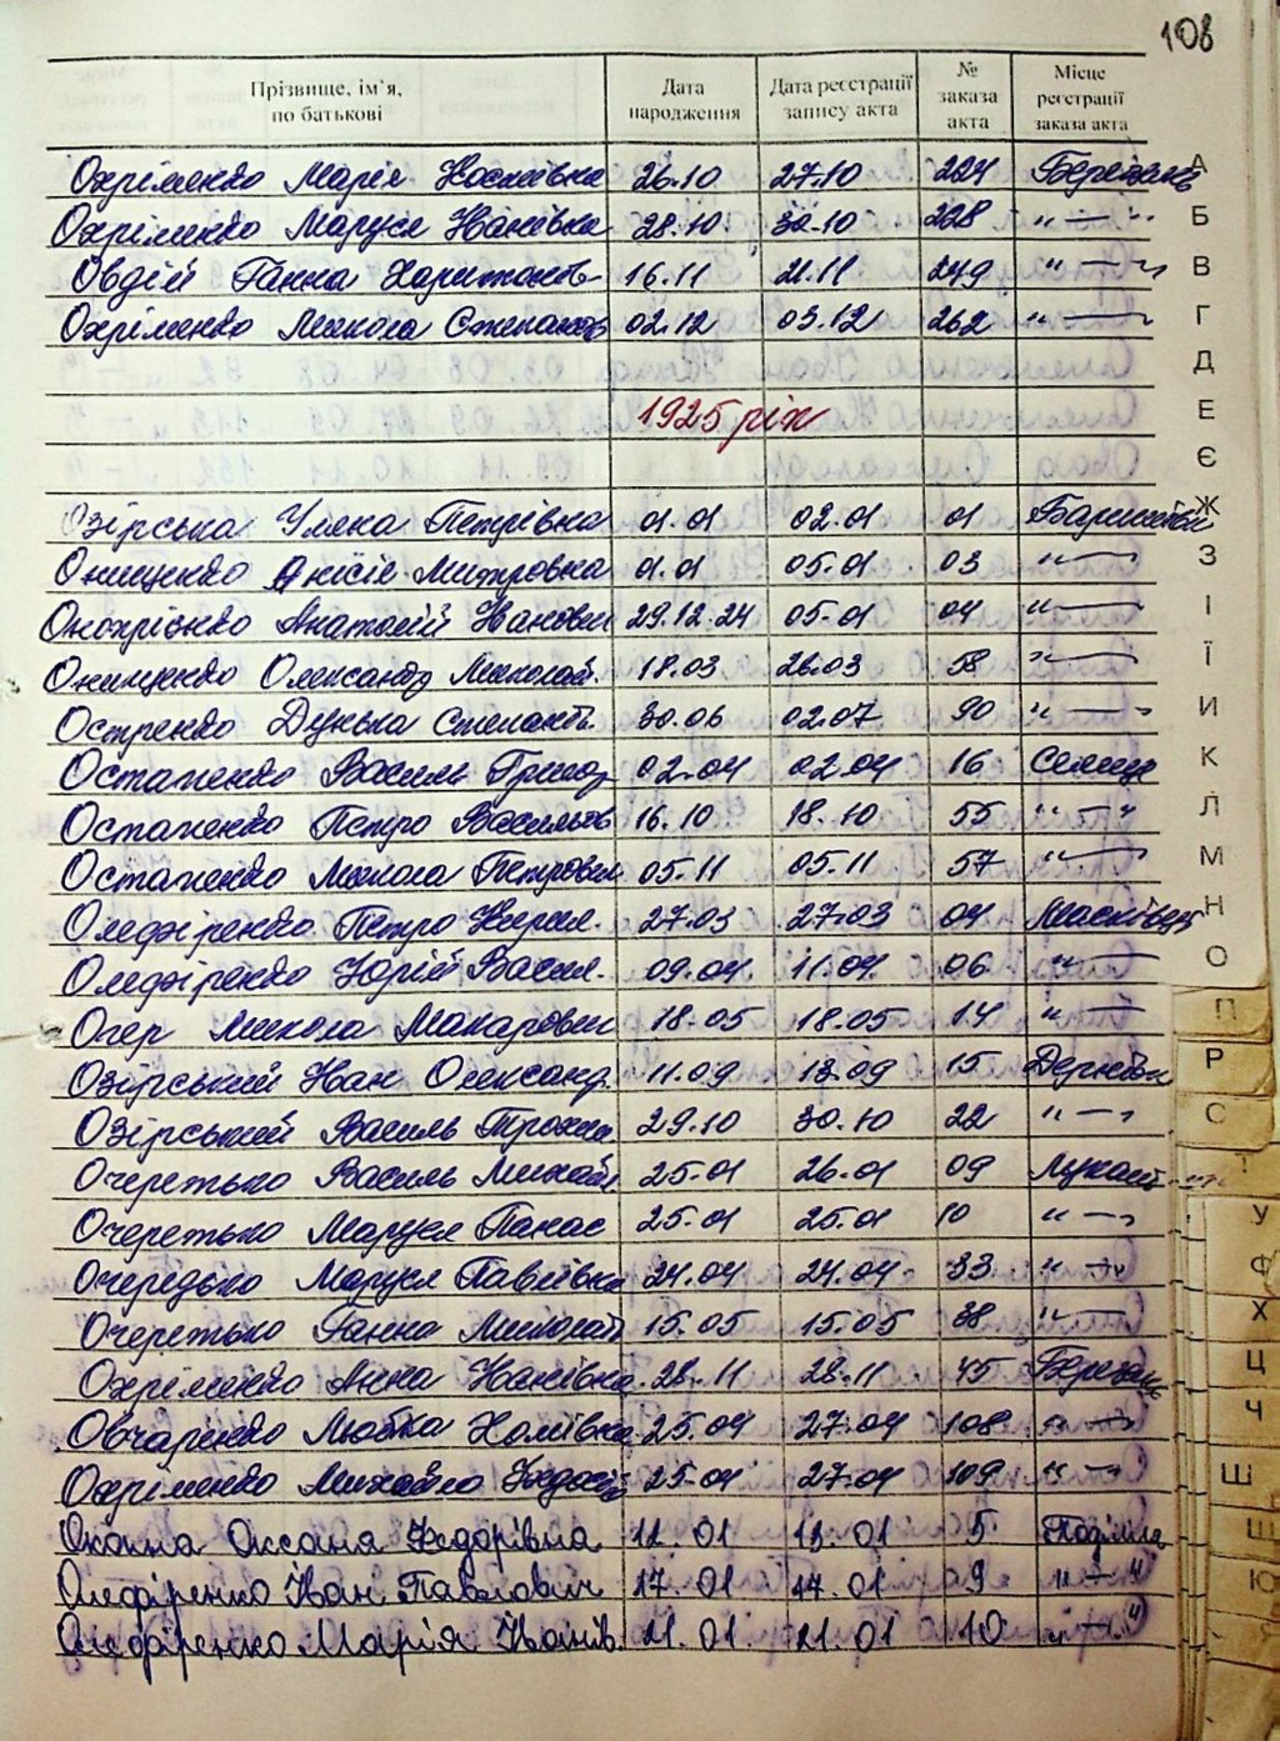 108
Прізвище, ім'я, по батькові Дата народження Дата реєстрації запису акта № заказа акта Місце реєстрації заказа акта
Охріменко Марія 26.10 27.10 224 Березань А
Охріменко Маруся Іванівна 28.10 30.10 228 " — " Б
Овдій Ганна Харитонів 16.11 21.11 249 " — " В
Охріменко Микола Степанов 02.12 03.12 262 " — Г
Д
1925 рік Е
Є
Озірська Уляна Петрівна 01.01 02.01 01 Баришівка Ж
Онищенко Анісія Митровна 01.01 05.01 03 " — З
Онопрієнко Анатолій Іванович 29.12.24 05.01 04 " — І
Онищенко Олександр Миколай. 18.03 26.03 58 " — Ї
Остренко Дунька Степанів. 30.06 02.07 90 " — " И
Остапенко Василь Григор 02.04 02.04 16 Селище К
Остапенко Петро Васильов 16.10 18.10 55 " — " Л
Остапенко Микола Петрович 05.11 05.11 57 " — М
Олефіренко Петро Кирил. 27.03 27.03 04 Масківці Н
Олефіренко Юрій Васил. 09.04 11.04 06 " — О
Огер Микола Макарович 18.05 18.05 14 " — П
Озірський Іван Олександ. 11.09 13.09 15 Дернівка Р
Озірський Василь Трохим 29.10 30.10 22 " — " С
Очеретько Василь Михайл. 25.01 26.01 09 Лукаші Т
Очеретько Маруся Панас 25.01 25.01 10 " — " У
Очередько Маруся Павлівна 24.04 24.04 33 " — " Ф
Очеретько Ганна Миколаїв 15.05 15.05 38 " — Х
Охріменко Анна Іванівна 28.11 28.11 45 Березань Ц
Овчаренко Любка Хомівна 25.04 27.04 108 " — Ч
Охріменко Михайло 25.04 27.04 109 " — " Ш
Оксана Федорівна 12.01 13.01 5 Щ
Олефіренко Іван Павлович 17.01 17.01 9 " — " Ю
Олефіренко Марія Іванів. 21.01. 21.01 10 " — "